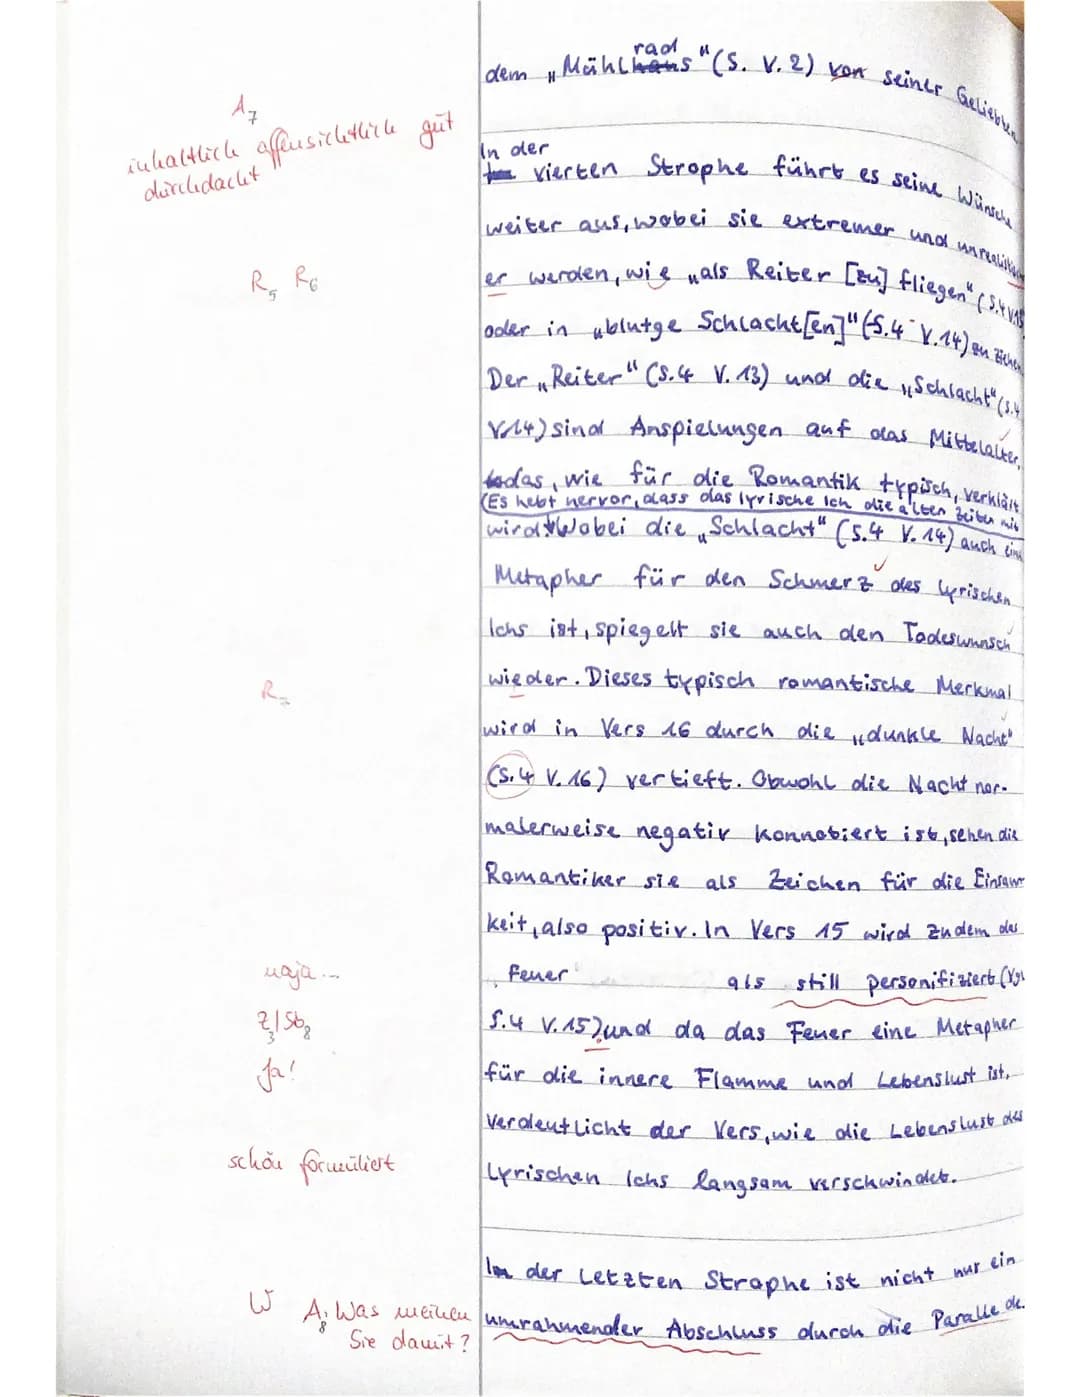 dem „Mühlhausrad" (S. V.2) von seiner Geliebten
A7
inhaltlich offensichtlich gut
durchdacht
In der
vierten Strophe führt es seine Wünsche
weiter aus, wobei sie extremer und unrealistisch
R5 R6
er werden, wie „als Reiter [zu] fliegen" (S.4 V.13
oder in „blutge Schlacht[en]" (S.4 V.14) zu ziehen
Der „Reiter" (S.4 V.13) und die „Schlacht" (S.4
V.14) sind Anspielungen auf das Mittelalter,
das, wie für die Romantik typisch, verklärt
(Es hebt hervor, dass das lyrische Ich die alten Zeiten mit
wird. Wobei die „Schlacht" (S.4 V.14) auch eine
Metapher für den Schmerz des lyrischen
Ichs ist, spiegelt sie auch den Todeswunsch
R7
wieder. Dieses typisch romantische Merkmal
wird in Vers 16 durch die „dunkle Nacht"
(S.4 V.16) vertieft. Obwohl die Nacht nor-
malerweise negativ konnotiert ist, sehen die
Romantiker sie als Zeichen für die Einsam
keit, also positiv. In Vers 15 wird zudem das
naja...
Feuer als still personifiziert (Vgl
Z3 | Sb8
S.4 V.15) und da das Feuer eine Metapher
ja!
für die innere Flamme und Lebenslust ist,
verdeutlicht der Vers, wie die Lebenslust des
schön formuliert
Lyrischen Ichs langsam verschwindet.
In der Letzten Strophe ist nicht nur ein
W A8: Was meinen
Sie damit?
umrahmender Abschluss durch die Paralle de.